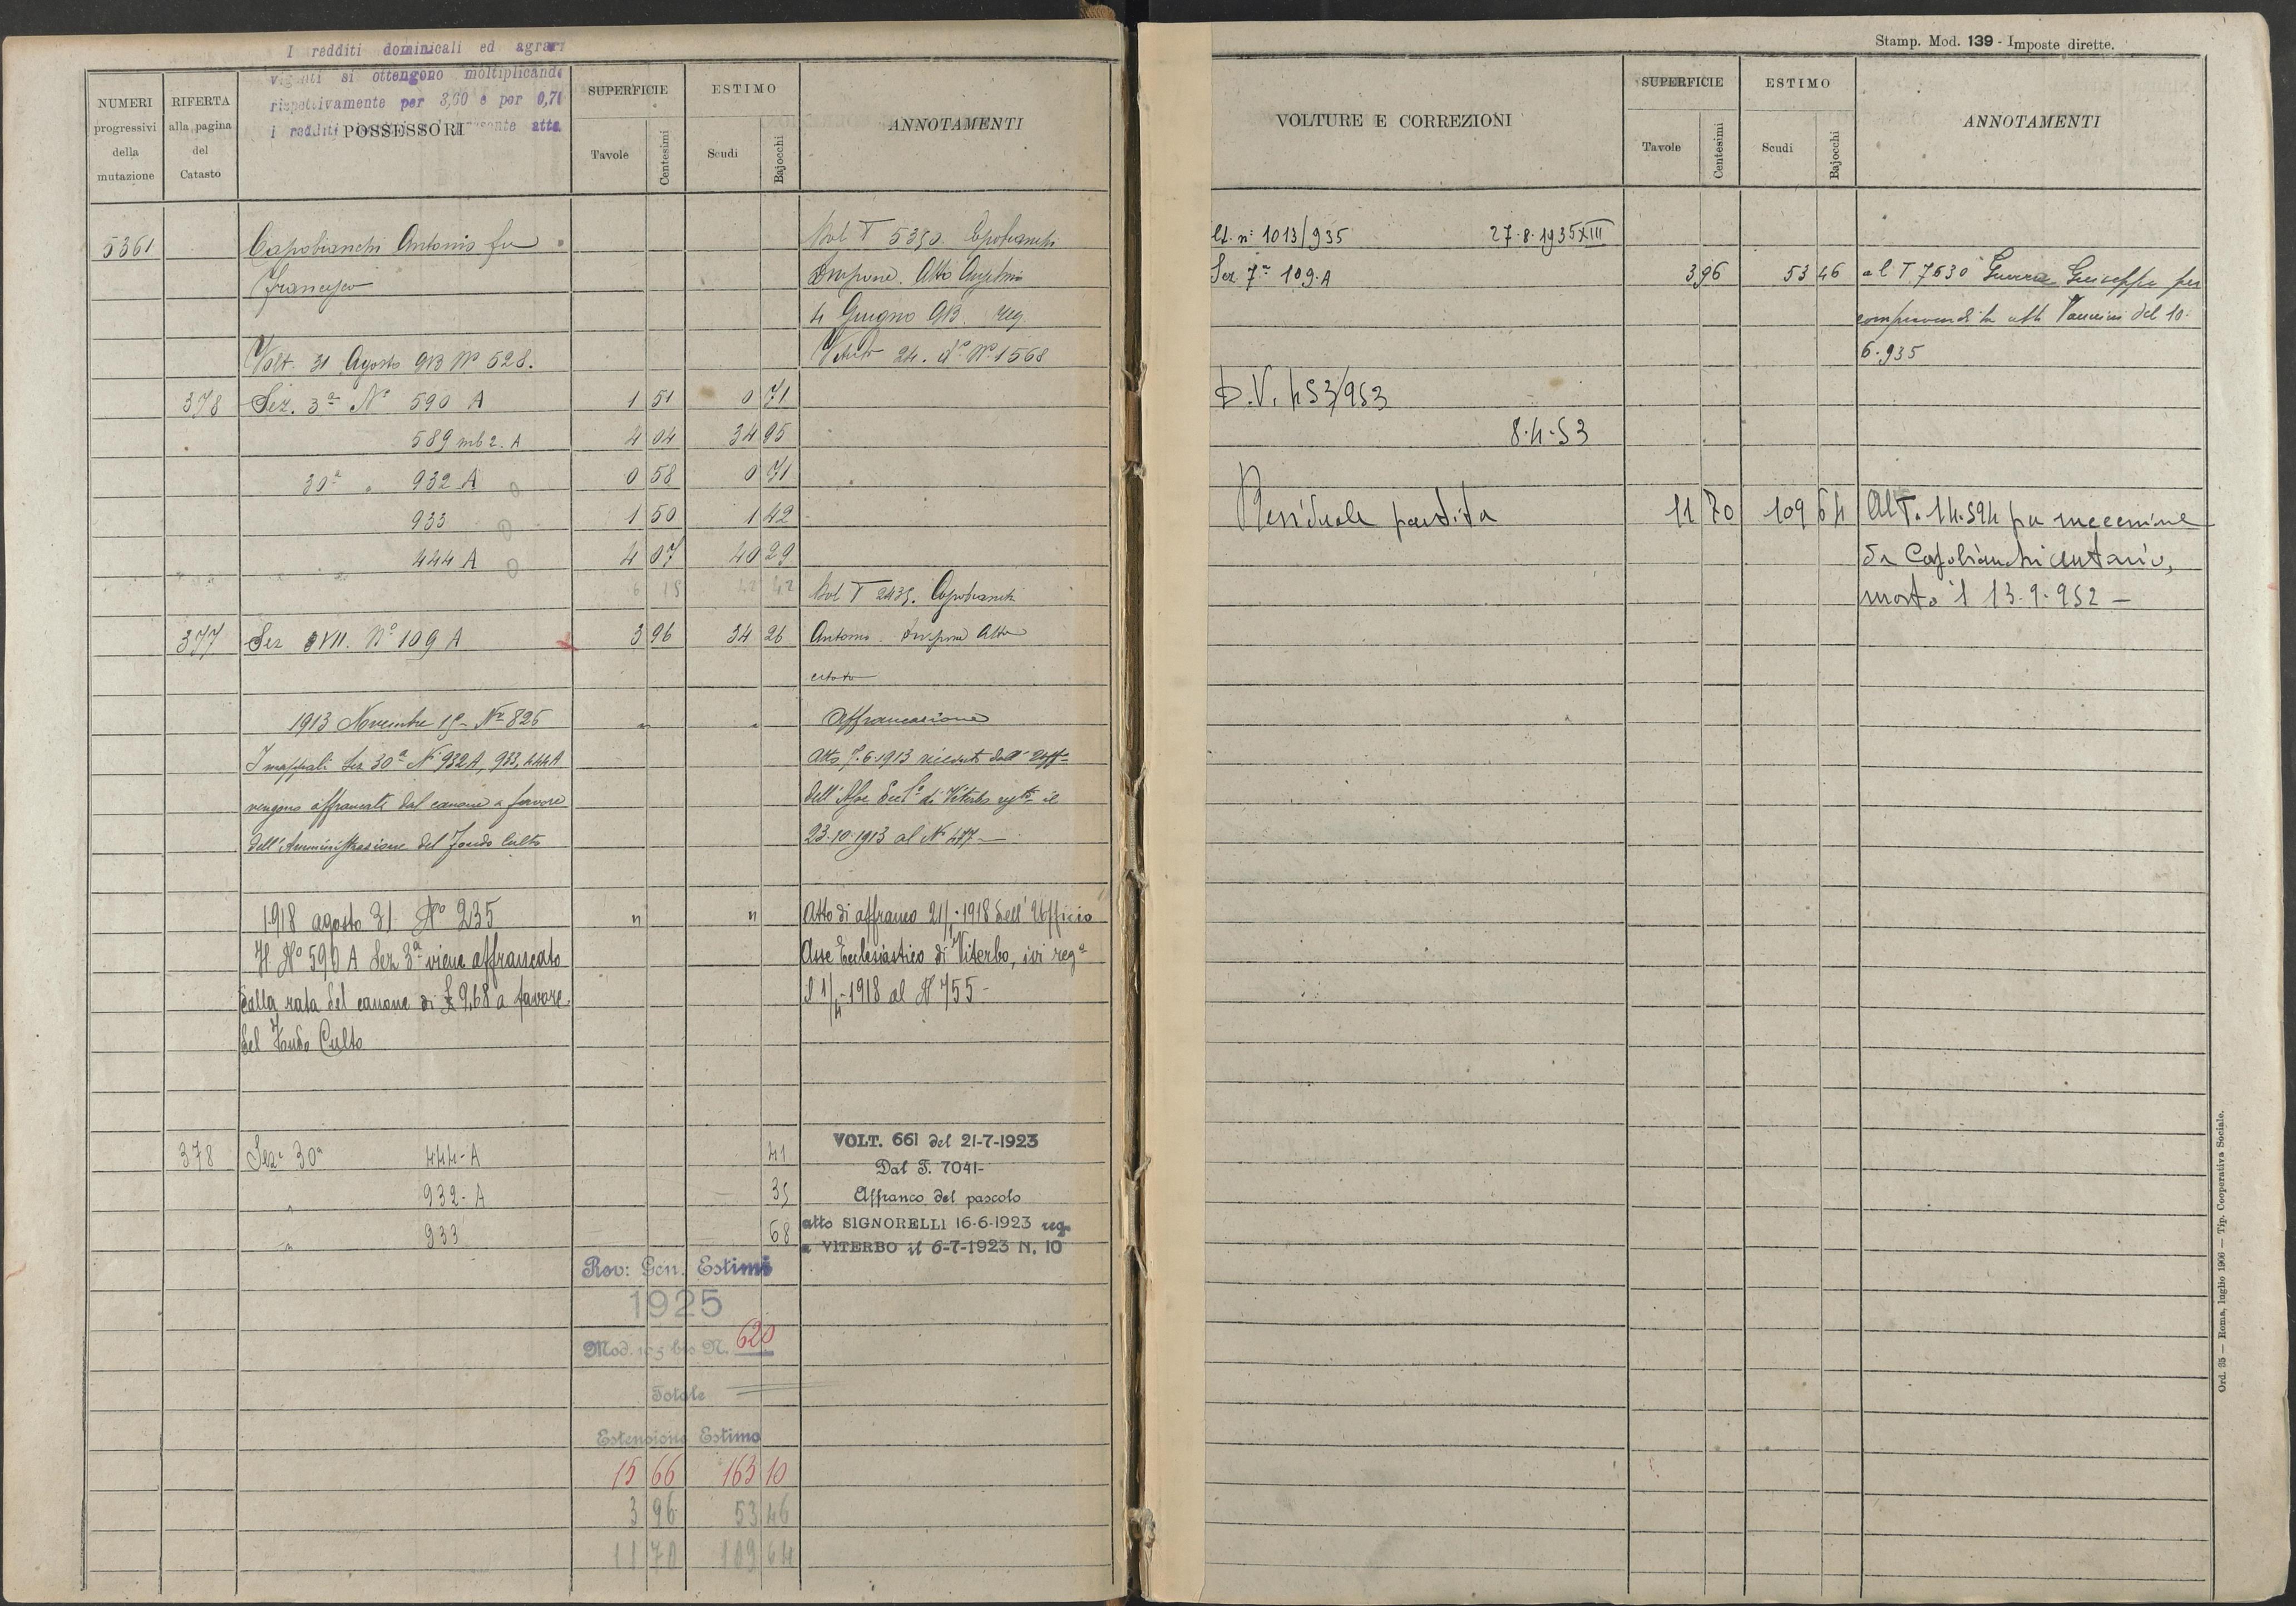 I redditi dominicali ed agrari
vigenti si ottengono moltiplicando
rispettivamente per 3,60 e per 0,71
i redditi presente atto
NUMERI progressivi della mutazione
RIFERTA alla pagina del Catasto
POSSESSORI
SUPERFICIE
Tavole Centesimi
ESTIMO
Scudi Bajocchi
ANNOTAMENTI
5361 Capobianchi Antonio fu Dal T 5350. Capobianchi
Francesco Atto Anselmi
4 Giugno 913. reg.
Volt. 31 Agosto 913 Nº 528. Viterbo 24. dº Nº 1568
378 Sez. 3ª Nº 590 A 1 51 0 71
589 sub 2. A 4 04 34 95
30ª " 932 A 0 58 0 71
933 1 50 1 42
444 A 4 07 40 29
6 15 42 42 Dal T 2435. Capobianchi
377 Sez XVII. Nº 109 A 3 96 34 26 Antonio. Atto
citato
1913 Novembre 15 - Nº 826 " " Affrancazione
I mappali Sez 30ª Nº 932A, 933, 444A Atto 7.6.1913 ricevuto dall'
vengono affrancati dal canone a favore dell' Asse Eccl. di Viterbo regto il
dell'Amministrazione del Fondo Culto 23.10.1913 al Nº 477 -
1918 agosto 31 Nº 235 " " Atto di affranco 21/1-1918 dell' Ufficio
Il Nº 590 A Sez 3ª viene affrancato Asse Ecclesiastico di Viterbo, ivi regº
dalla rata del canone di £ 9,68 a favore il 1/4-1918 al Nº 755 -
del Fondo Culto
378 Sez. 30ª 444-A 41
" 932-A 35
" 933 68
VOLT. 661 del 21-7-1923
Dal T. 7041-
Affranco del pascolo
atto SIGNORELLI 16-6-1923 reg.
a VITERBO il 6-7-1923 N. 10
Rev: Gen. Estimi
1925
Mod. 103 bis N. 620
Totale
Estensione Estimo
15 66 163 10
3 96 53 46
11 70 109 64
Stamp. Mod. 139 - Imposte dirette.
VOLTURE E CORREZIONI
SUPERFICIE
Tavole Centesimi
ESTIMO
Scudi Bajocchi
ANNOTAMENTI
lt. nº 1013/935 27.8.1935 XIII
Sez 7ª 109.A 3 96 53 46 al T 7630 Guerra Giuseppe per
compravendita atto Vannini del 10.
6.935
D.V. 453/953
8.4.53
Residuale partita 11 70 109 64 Al T. 14.594 per successione
da Capobianchi Antonio,
morto il 13.9.952 -
Ord. 35 — Roma, luglio 1906 — Tip. Cooperativa Sociale.